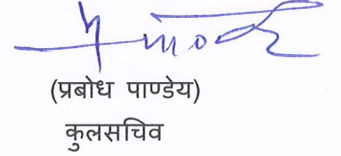 (प्रबोध पाण्डेय)
कुलसचिव